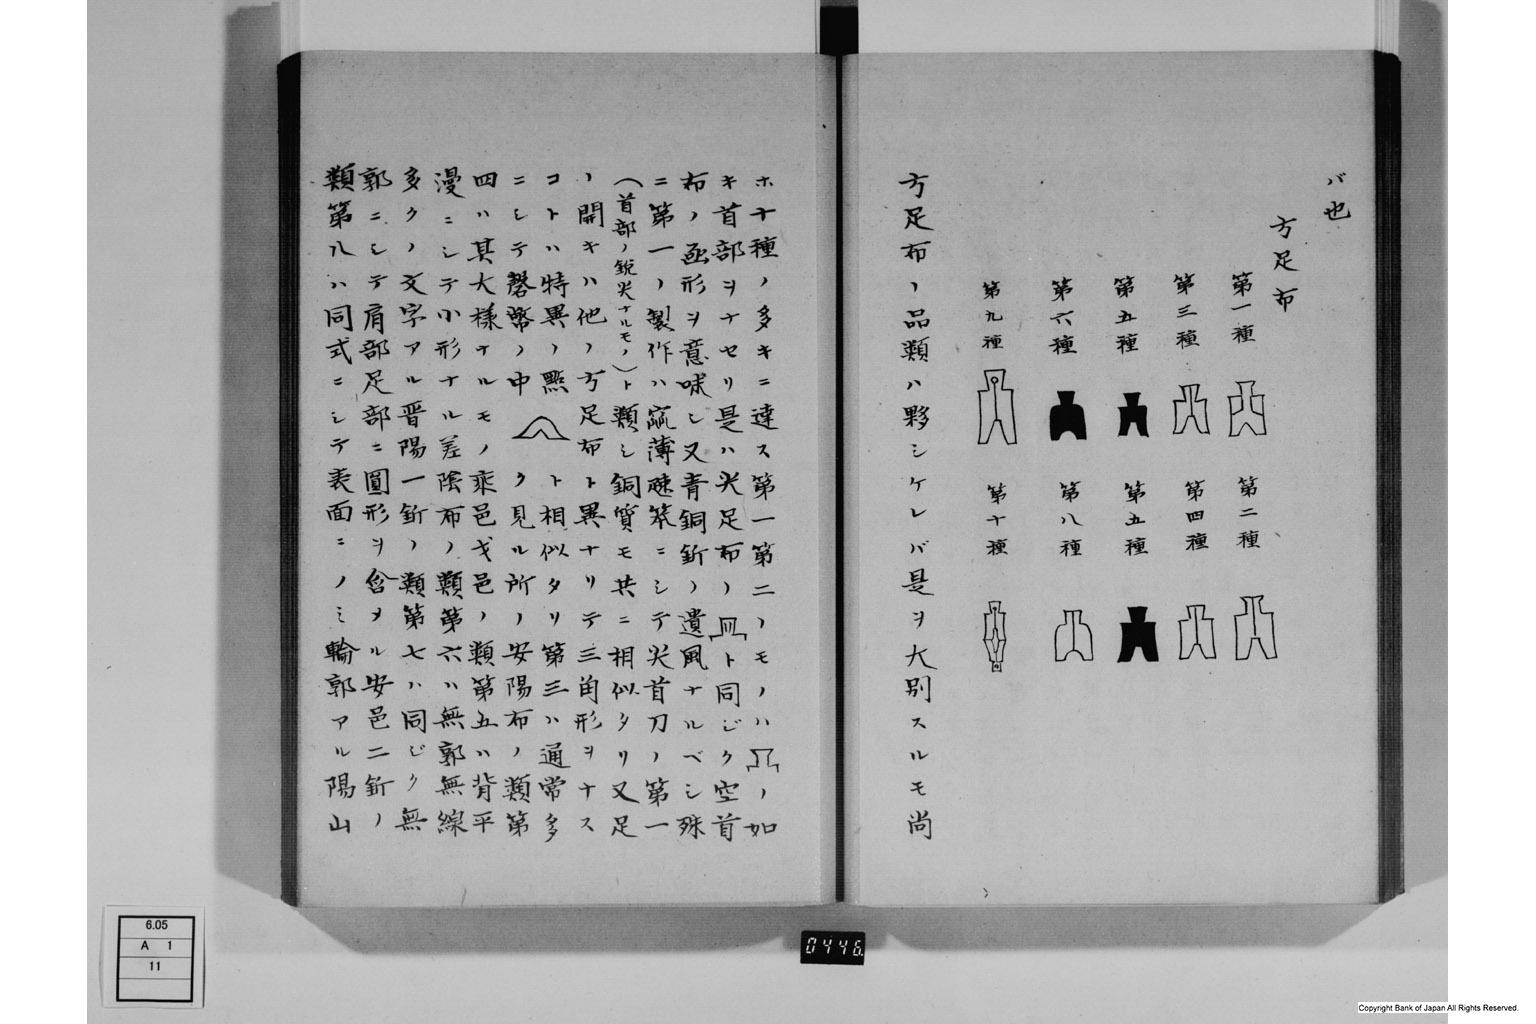 バ也
方足布
第一種
第二種
第三種
第四種
第五種
第五種
第六種
第八種
第九種
第十種
方足布ノ品類ハ夥シケレバ是ヲ大別スルモ尚
ホ十種ノ多キニ達ス第一第二ノモノハノ如
キ首部ヲナセリ是ハ尖足布ノト同ジク空首
布ノ形ヲ意味シ又青銅釿ノ遺風ナルベシ殊
ニ第一ノ製作ハ薄ニシテ尖首刀ノ第一
(首部ノ鋭尖ナルモノ)ト類シ銅質モ共ニ相似タリ又足
ノ開キハ他ノ方足布ト異ナリテ三角形ヲナス
コトハ特異ノ點ト相似タリ第三ハ通常多
ニシテ磬幣ノ中ク見ル所ノ安陽布ノ類第
四ハ其大様ナルモノ乘邑戈邑ノ類第五ハ背平
漫ニシテ小形ナル差陰布ノ類第六ハ無郭無線
多クノ文字アル晋陽一釿ノ類第七ハ同ジク無
郭ニシテ肩部足部ニ圓形ヲ含メル安邑二釿ノ
類第八ハ同式ニシテ表面ニノミ輪郭アル陽山
6.05
A 1
11
0446
Copyright Bank of Japan All Rights Reserved.